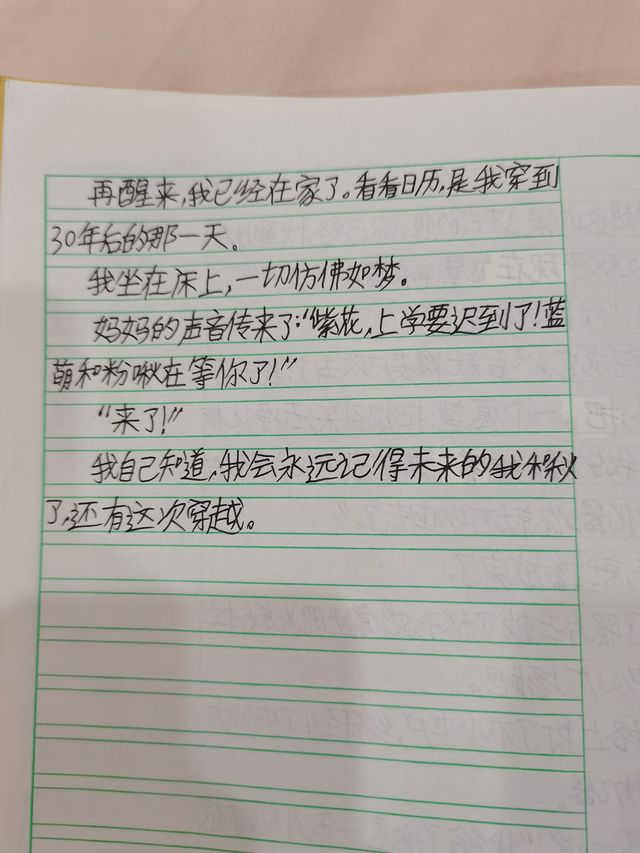 再醒来,我已经在家了。看看日历,是我穿到
30年后的那一天。
我坐在床上,一切仿佛如梦。
妈妈的声音传来了:“紫花,上学要迟到了!蓝
萌和粉啾在等你了!”
“来了!”
我自己知道,我会永远记得未来的我和秋
了,还有这次穿越。